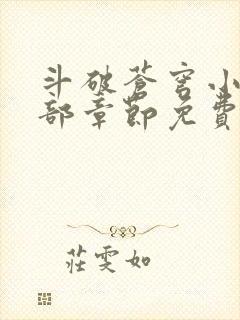 斗破蒼穹小
部章節免費
莊雯如